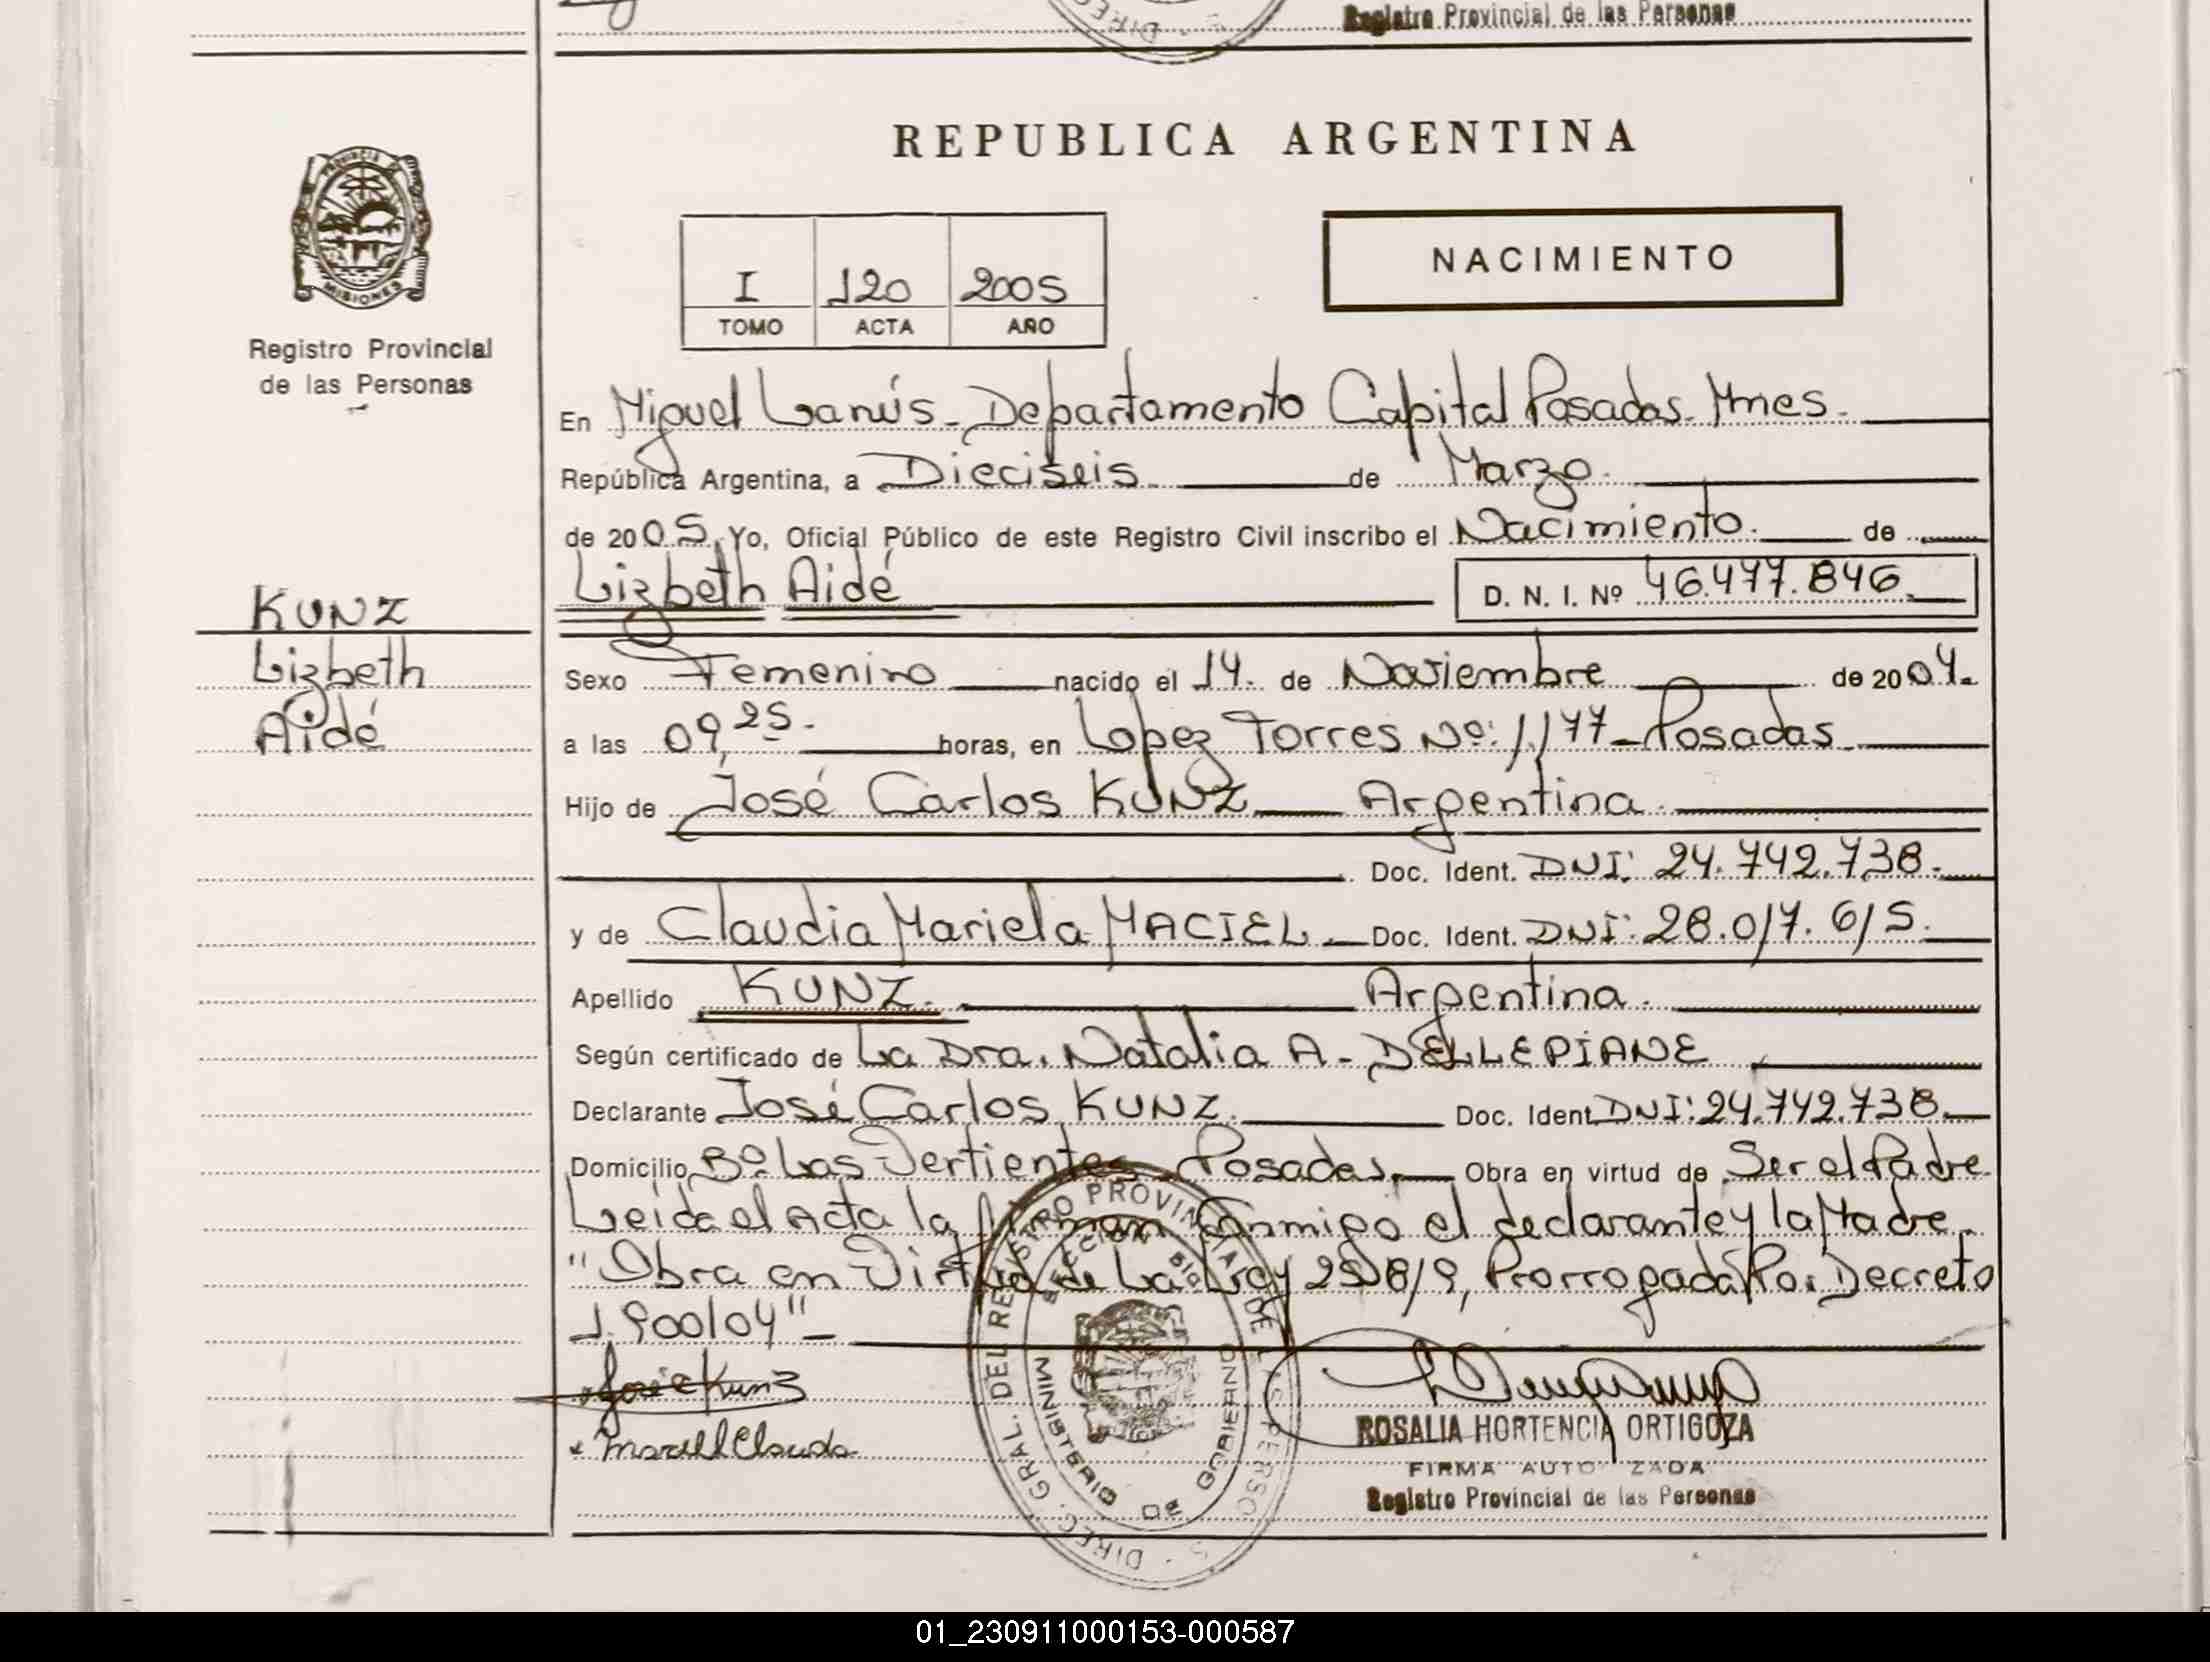 Registro Provincial de las Personas
REPUBLICA ARGENTINA
PROVINCIA DE
MISIONES
Registro Provincial
de las Personas
I 120 2005
TOMO ACTA AÑO
NACIMIENTO
En Miguel Lanús - Departamento Capital Posadas - Mnes.
República Argentina, a Dieciseis de Marzo.
de 2005. Yo, Oficial Público de este Registro Civil inscribo el Nacimiento. de
Lizbeth Aidé D. N. I. Nº 46.477.846.
KUNZ
Lizbeth
Aidé
Sexo Femenino nacido el 14. de Noviembre de 2004.
a las 09,25. horas, en Lopez Torres Nº: 1.177 - Posadas.
Hijo de José Carlos KUNZ Argentina.
Doc. Ident. DNI: 24.742.738.
y de Claudia Mariela MACIEL - Doc. Ident. DNI: 28.017.615.
Apellido KUNZ. Argentina.
Según certificado de La Dra. Natalia A. DELLEPIANE
Declarante José Carlos KUNZ. Doc. Ident. DNI: 24.742.738.
Domicilio Bº Las Vertientes Posadas. Obra en virtud de Ser el Padre
Leida el Acta la firman Conmigo el declarante y la Madre.
"Obra en Virtud de La Ley 25.819, Prorrogada Por Decreto
1.900/04"
José C Kunz
Maciel Claudia
DIREC. GRAL. DEL REGISTRO PROVINCIAL DE LAS PERSONAS
MINISTERIO DE GOBIERNO
ROSALIA HORTENCIA ORTIGOZA
FIRMA AUTO ZADA
Registro Provincial de las Personas
01_230911000153-000587